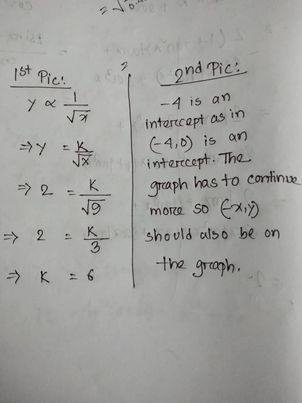 = √0.
1st Pic:
y ∝ 1/√x
⇒ y = K/√x
⇒ 2 = K/√9
⇒ 2 = K/3
⇒ K = 6
=
2nd Pic:
-4 is an
intercept as in
(-4,0) is an
intercept. The
graph has to continue
more so (-x,y)
should also be on
the graph.